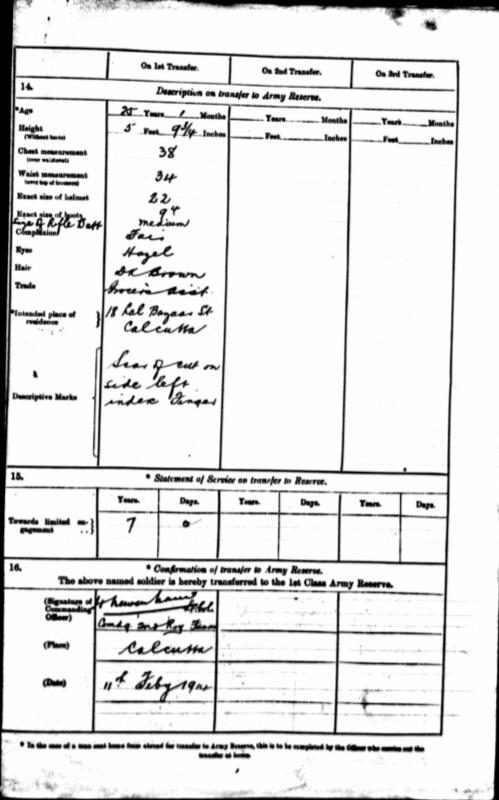 On 1st Transfer. On 2nd Transfer. On 3rd Transfer.
14. Description on transfer to Army Reserve.
*Age 25 Years 1 Months Years Months Years Months
Height 5 Feet 9 3/4 Inches Feet Inches Feet Inches
(Without boots)
Chest measurement 38
(over waistcoat)
Waist measurement 34
(over top of trousers)
Exact size of helmet 22
Exact size of boots 9 4
Size of Rifle Butt medium
Complexion Fair
Eyes Hazel
Hair Dk Brown
Trade Grocers Asst
*Intended place of residence } 18 Lal Bazaar St
Calcutta
Descriptive Marks
Scar of cut on
side left
index Finger
15. * Statement of Service on transfer to Reserve.
Years. Days. Years. Days. Years. Days.
Towards limited en-
gagement .. } 7 0
16. * Confirmation of transfer to Army Reserve.
The above named soldier is hereby transferred to the 1st Class Army Reserve.
(Signature of
Commanding
Officer) Lt Col
Comdg 2nd Roy
(Place) Calcutta
(Date) 11th Feby
* In the case of a man sent home from abroad for transfer to Army Reserve, this is to be completed by the Officer who carries out the
transfer at home.